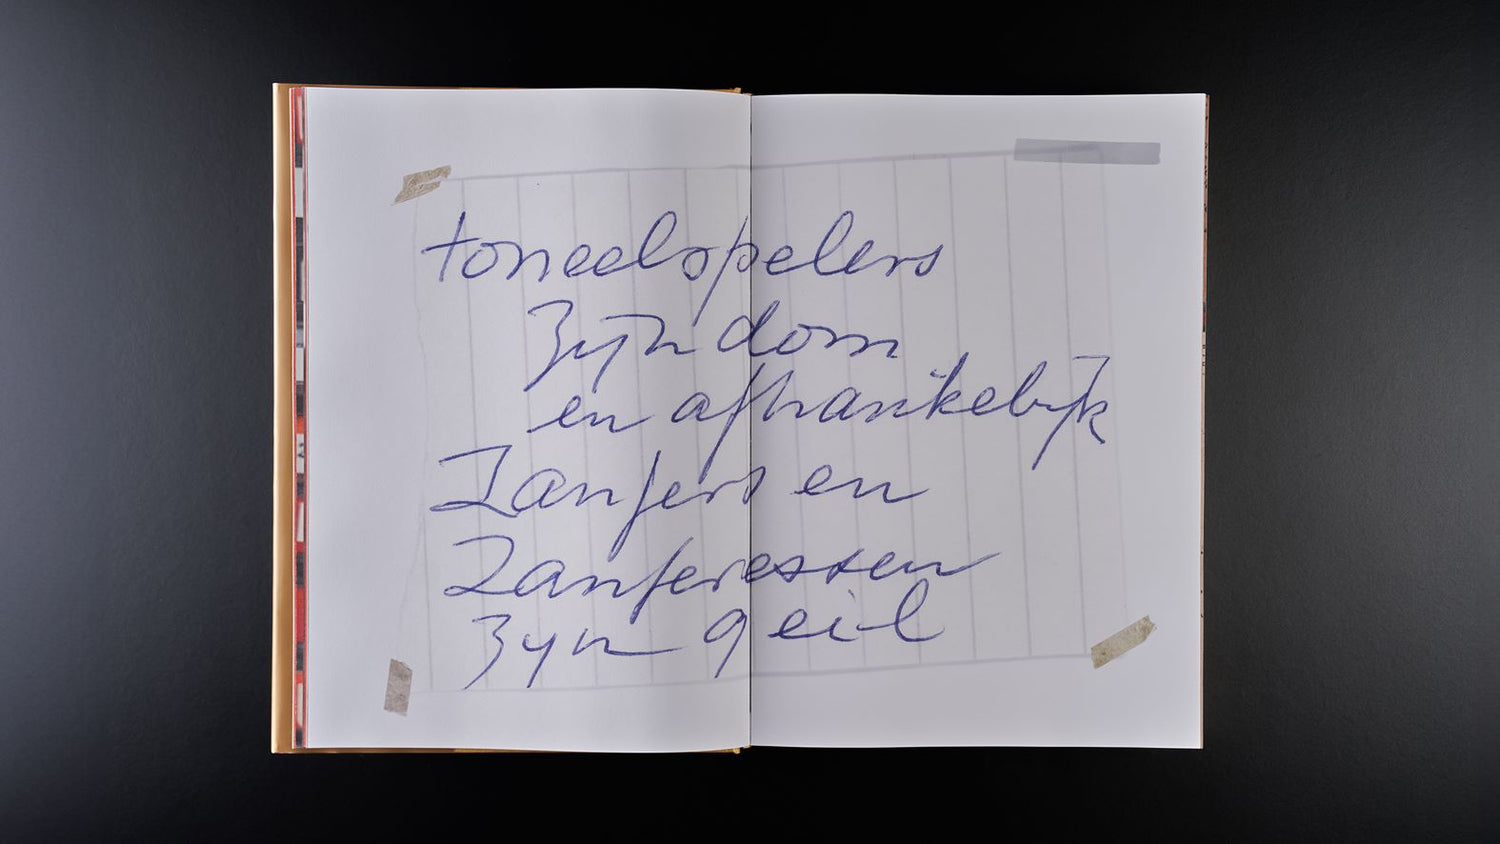 toneelspelers
zijn dom
en afhankelijk
Zangers en
Zangeressen
zijn geil